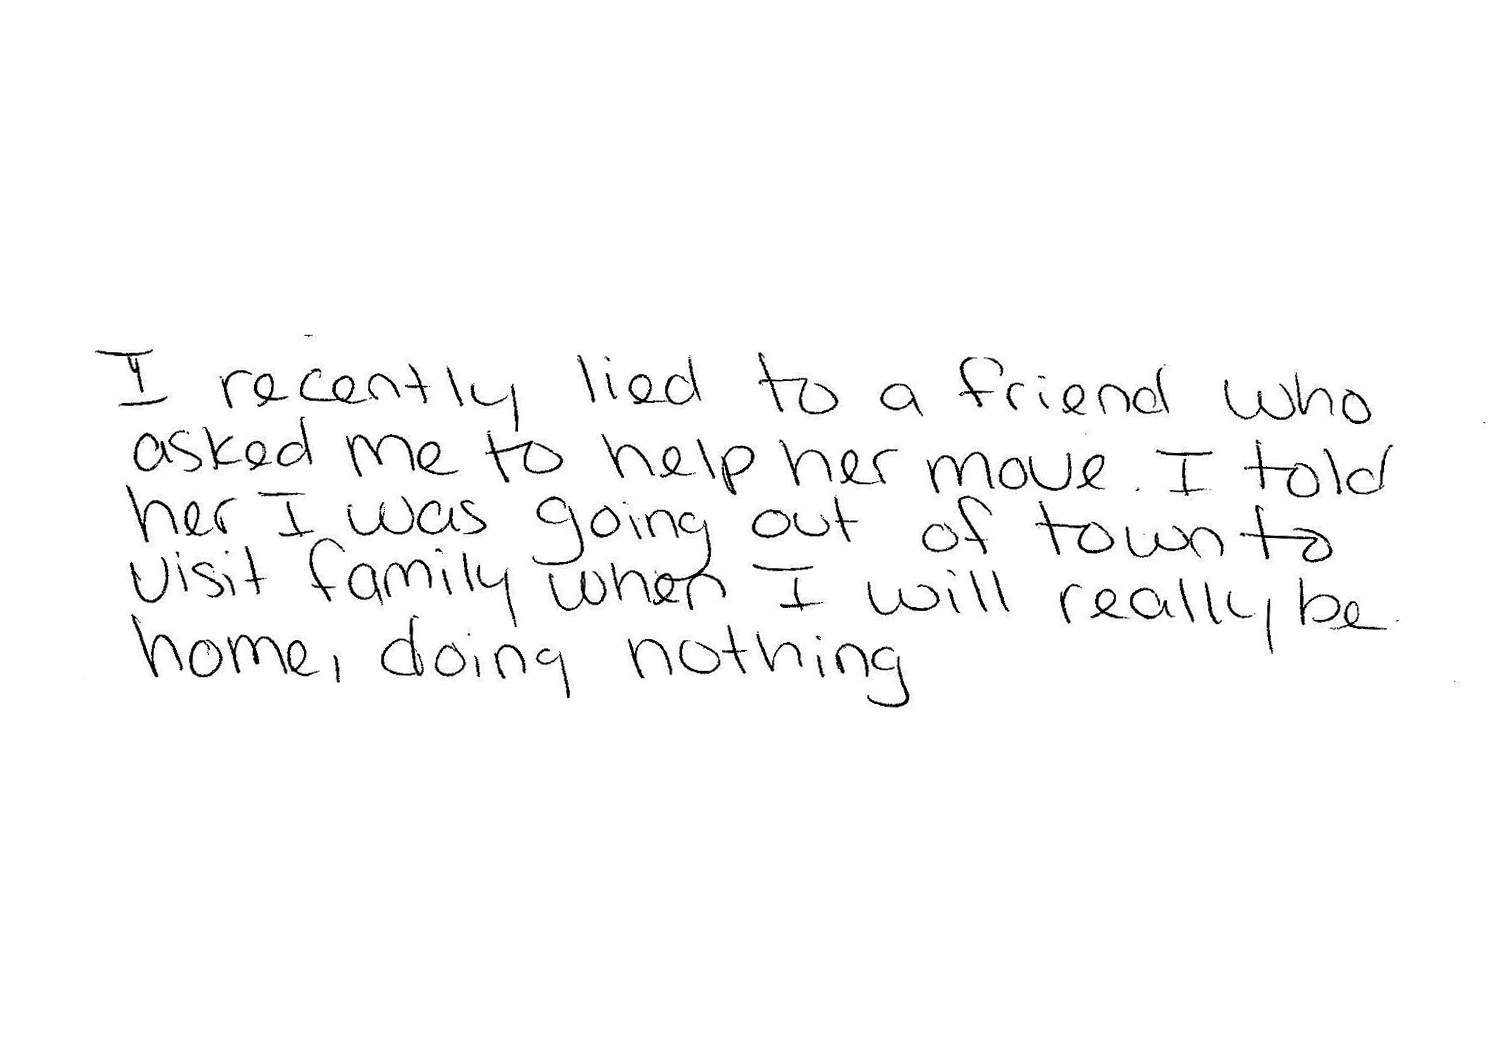 I recently lied to a friend who
asked me to help her move. I told
her I was going out of town to
visit family when I will really be
home, doing nothing